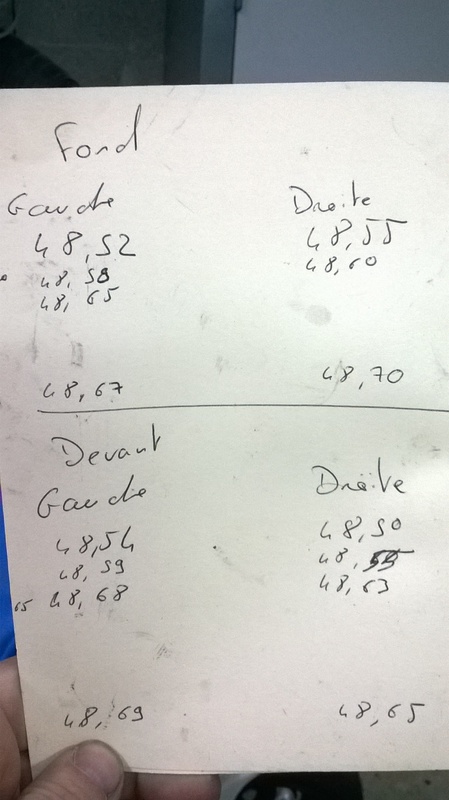 Fond
Gauche Droite
48,52 48,55
48,58 48,60
48,65
48,67 48,70
Devant
Gauche Droite
48,54 48,50
48,59 48,55
65 48,68 48,63
48,69 48,65